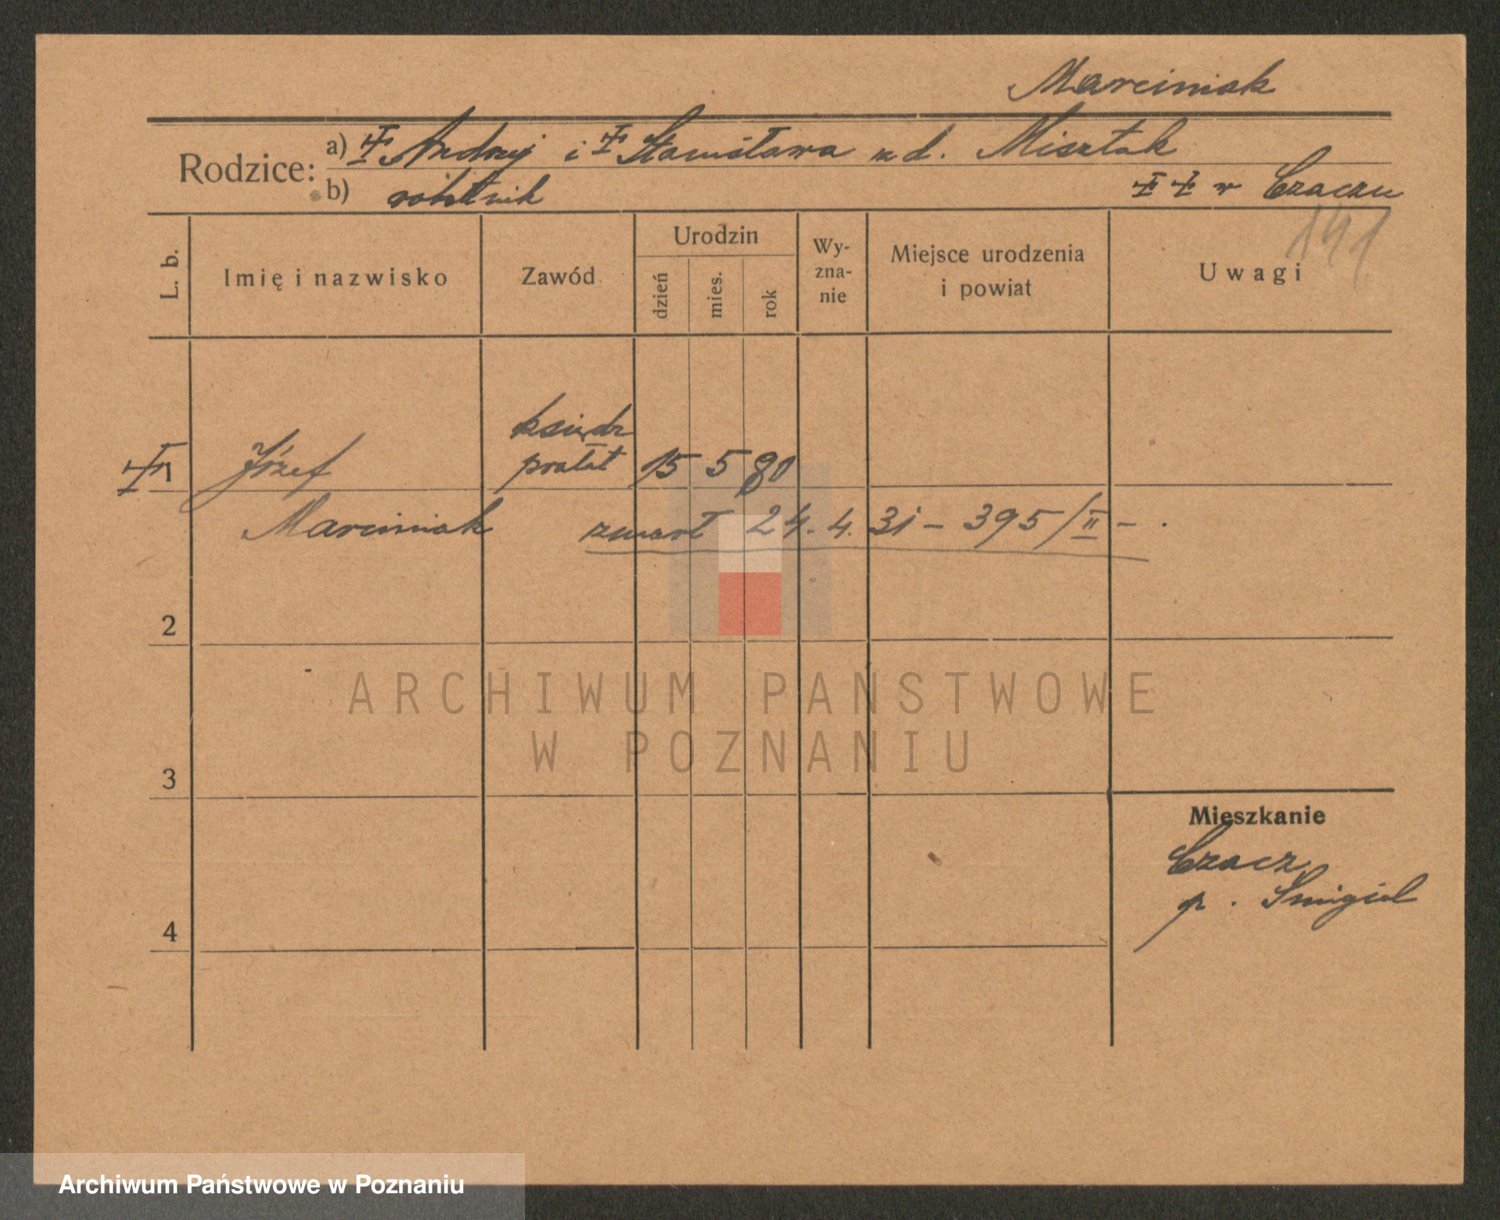 Marciniak
Rodzice: a) Andrzej i Stanisława z d. Misztak
b) robotnik w Czaczu
141
L. b.
Imię i nazwisko
Zawód
Urodzin
dzień
mies.
rok
Wy-
zna-
nie
Miejsce urodzenia
i powiat
Uwagi
1 Józef ksiądz
prałat 15 5 80
Marciniak zmarł 24. 4. 31 - 395/II - .
2
3
4
Mieszkanie
Czacz
p. Śmigiel
ARCHIWUM PAŃSTWOWE
W POZNANIU
Archiwum Państwowe w Poznaniu